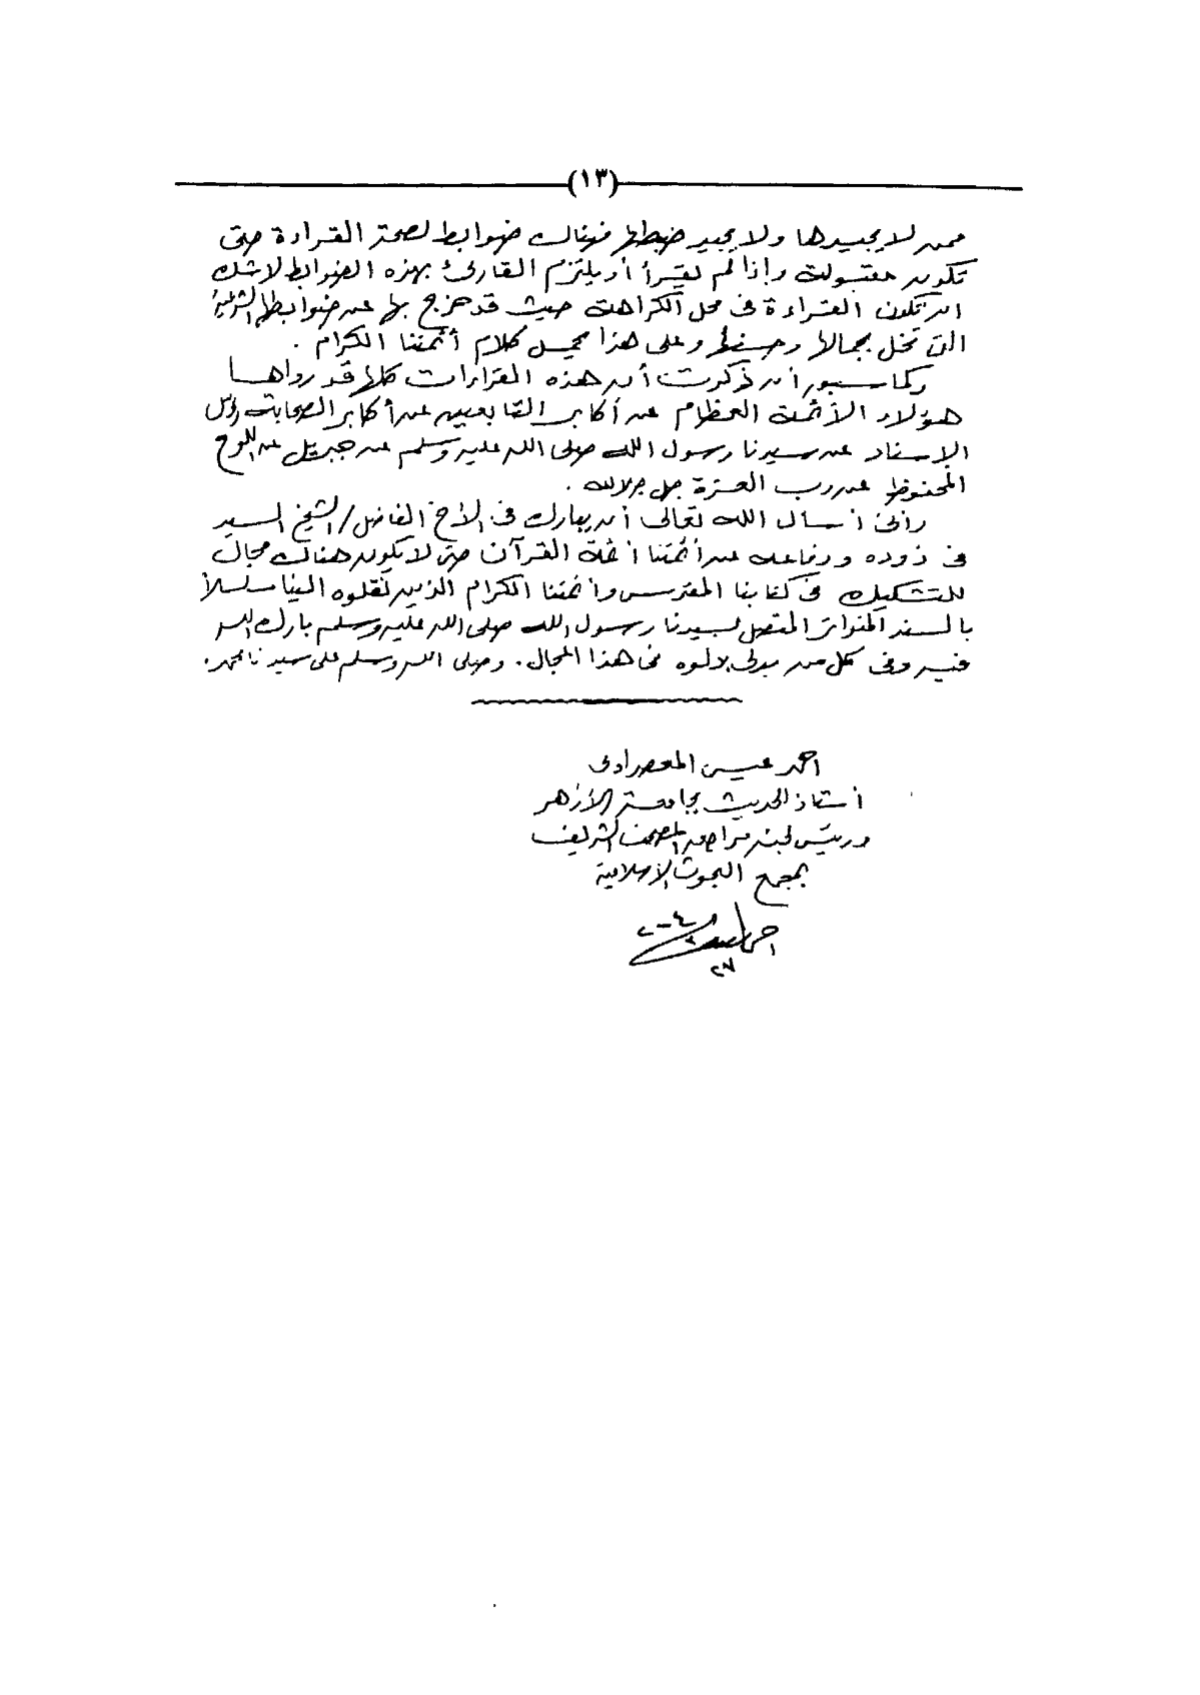 (١٣)
ممن لا يجيدها ولا يجيد ضبطها فهناك ضوابط لصحة القراءة حتى
تكون مقبولة وإذا لم يقرأ أو يلتزم القارئ بهذه الضوابط لا شك
أن تكون القراءة فى محل الكراهة حيث قد خرج بها عن ضوابطها الشرعية
التى تخل بجمالها وحسنها وعلى هذا يحمل كلام أئمتنا الكرام .
وكما سبق أن ذكرت أن هذه القراءات كلها قد رواها
هؤلاء الأئمة العظام عن أكابر التابعين عن أكابر الصحابة
الإسناد عن سيدنا رسول الله صلى الله عليه وسلم عن جبريل عن اللوح
المحفوظ عن رب العزة جل جلاله .
وإنى أسأل الله تعالى أن يبارك فى الأخ الفاضل/ الشيخ السيد
فى ذوده ودفاعه عن أئمتنا أئمة القرآن حتى لا يكون هناك مجال
للتشكيك فى كتابنا المقدس وأئمتنا الكرام الذين نقلوه إلينا مسلسلاً
بالسند المتواتر المتصل لسيدنا رسول الله صلى الله عليه وسلم بارك الله
فيه وفى كل من يدلى بدلوه فى هذا المجال . وصلى الله وسلم على سيدنا محمد .
أحمد عيسى المعصراوى
أستاذ الحديث بجامعة الأزهر
ورئيس لجنة مراجعة المصحف الشريف
بمجمع البحوث الإسلامية
٢٧